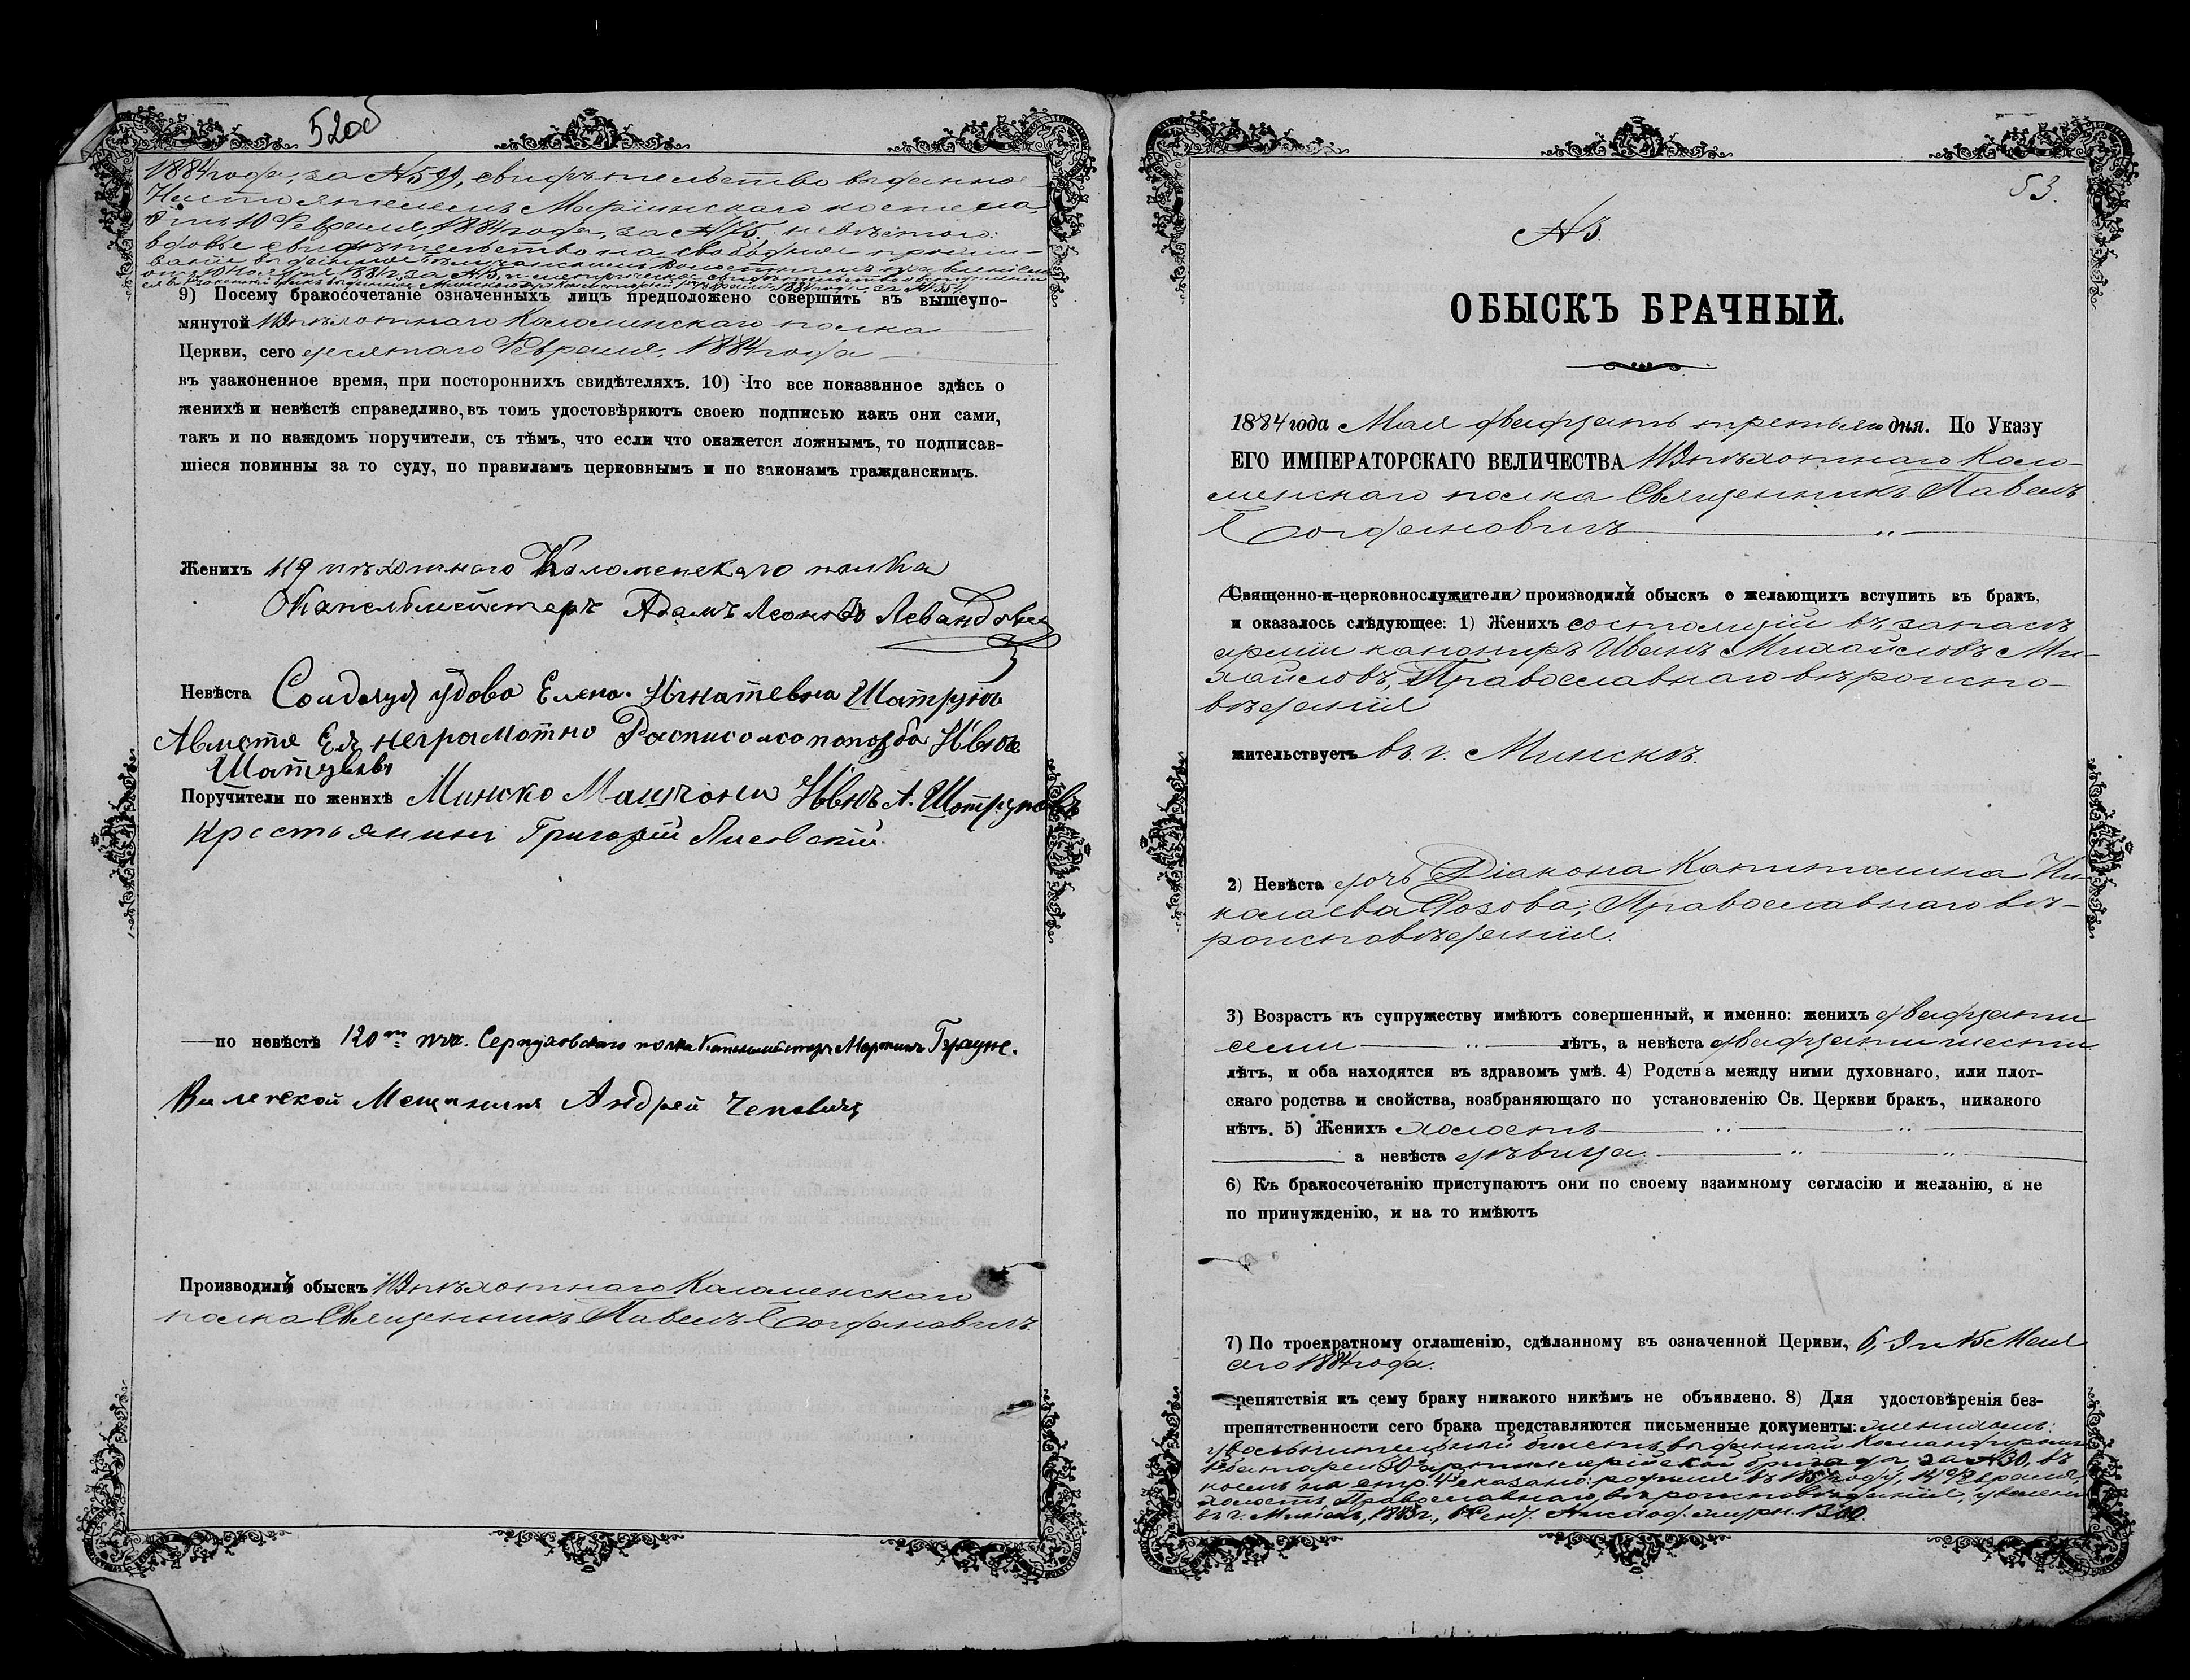 52об
1884 года, за №599, свидѣтельство выданное
Настоятелемъ Маріинскаго костела,
отъ 10 Февраля, 1884 года, за №75. невѣстою:
вдовье свидѣтельство на свободное прожи-
ваніе выданное Волостнымъ правленіемъ
1884 г. за №
9) Посему бракосочетаніе означенныхъ лицъ предположено совершить въ вышеупо-
мянутой 119 пѣхотнаго Коломенскаго полка
Церкви, сего десятаго Февраля, 1884 года
въ узаконенное время, при постороннихъ свидѣтеляхъ. 10) Что все показанное здѣсь о
женихѣ и невѣстѣ справедливо, въ томъ удостовѣряютъ своею подписью какъ они сами,
такъ и по каждомъ поручители, съ тѣмъ, что если что окажется ложнымъ, то подписав-
шіеся повинны за то суду, по правиламъ церковнымъ и по законамъ гражданскимъ.
Женихъ 119 пѣхотнаго Коломенскаго полка
Капельмейстеръ Адамъ Леоновъ
Невѣста удова Елена Игнатевна Шатрунъ
Авместе Ея неграмотно Росписолсо Ивнъ
Поручители по женихѣ Минско Ивнъ А. Шотруновъ
Крестьянинъ Григорій Лисовскій
по невѣстѣ 120го пѣх. Серпуховскаго полка Капельмейстеръ Мартинъ Брауне.
Виленской Мещанинъ Андрей Чеповичъ
Производилъ обыскъ 119 пѣхотнаго Коломенскаго
полка Священникъ Павелъ Богдановичъ.
53.
№5.
ОБЫСКЪ БРАЧНЫЙ.
1884 года Мая двадцать третьяго дня. По Указу
ЕГО ИМПЕРАТОРСКАГО ВЕЛИЧЕСТВА 119 пѣхотнаго Коло-
менскаго полка Священникъ Павелъ
Богдановичъ
Священно-и-церковнослужители производилъ обыскъ о желающихъ вступить въ бракъ,
и оказалось слѣдующее: 1) Женихъ состоящій въ запасѣ
арміи канониръ Иванъ Михайловъ Ми-
хайловъ, Православнаго вѣроиспо-
вѣданія
жительствуетъ въ г. Минскѣ.
2) Невѣста дочь Діакона Капитолина Ни-
колаева Розова, Православнаго вѣ-
роисповѣданія.
3) Возрастъ къ супружеству имѣютъ совершенный, и именно: женихъ двадцати
семи лѣтъ, а невѣста двадцати шести
лѣтъ, и оба находятся въ здравомъ умѣ. 4) Родства между ними духовнаго, или плот-
скаго родства и свойства, возбраняющаго по установленію Св. Церкви бракъ, никакого
нѣтъ. 5) Женихъ холостъ
а невѣста дѣвица
6) Къ бракосочетанію приступаютъ они по своему взаимному согласію и желанію, а не
по принужденію, и на то имѣютъ
7) По троекратному оглашенію, сдѣланному въ означенной Церкви, 6, 9 и 15 Мая
сего 1884 года.
репятствія къ сему браку никакого никѣмъ не объявлено. 8) Для удостовѣренія без-
препятственности сего брака представляются письменные документы: женихомъ:
увольнительный билетъ выданный Командиромъ
батареи 30й артиллерійской бригады, за №30, въ
коемъ на стр. 4й сказано: родился въ году, 14 Февраля,
холостъ, Православнаго вѣроисповѣданія, уволенъ
въ г. Минскъ,